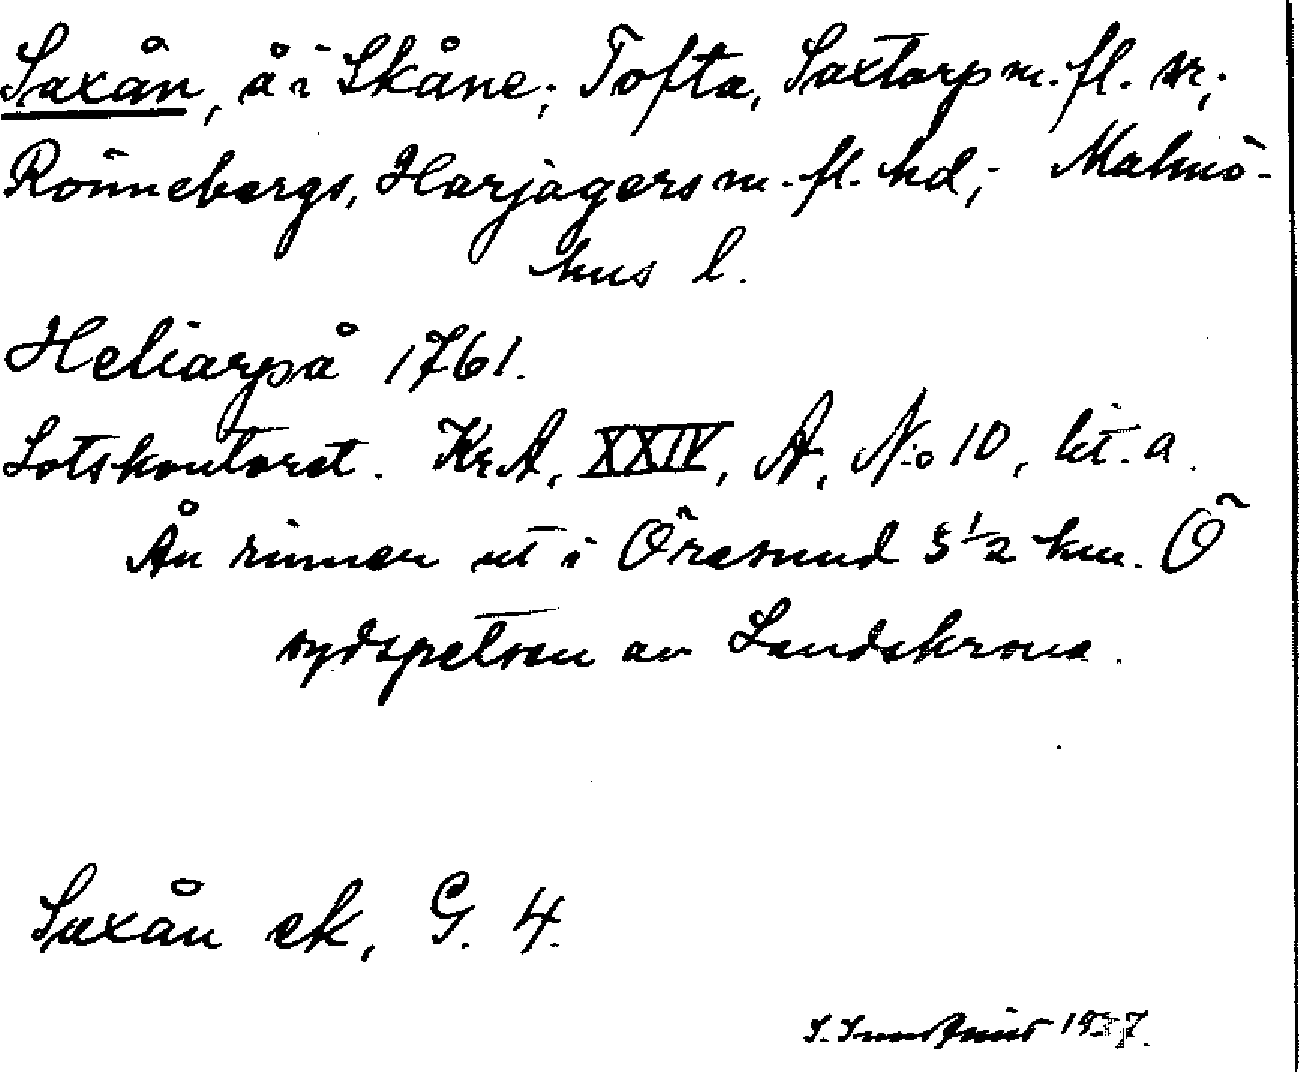 Saxån, å i Skåne; Tofta, Saxtorp m. fl. sn;
Rönnebergs, Harjagers m. fl. hd; Malmö-
hus l.
Heliarpså 1761.
Lotskontoret. Kr.A, XXIV, A, No 10, lit. a.
Ån rinner ut i Öresund 5 1/2 km. Ö
sydspetsen av Landskrona.
Saxån ek, G. 4.
1937.